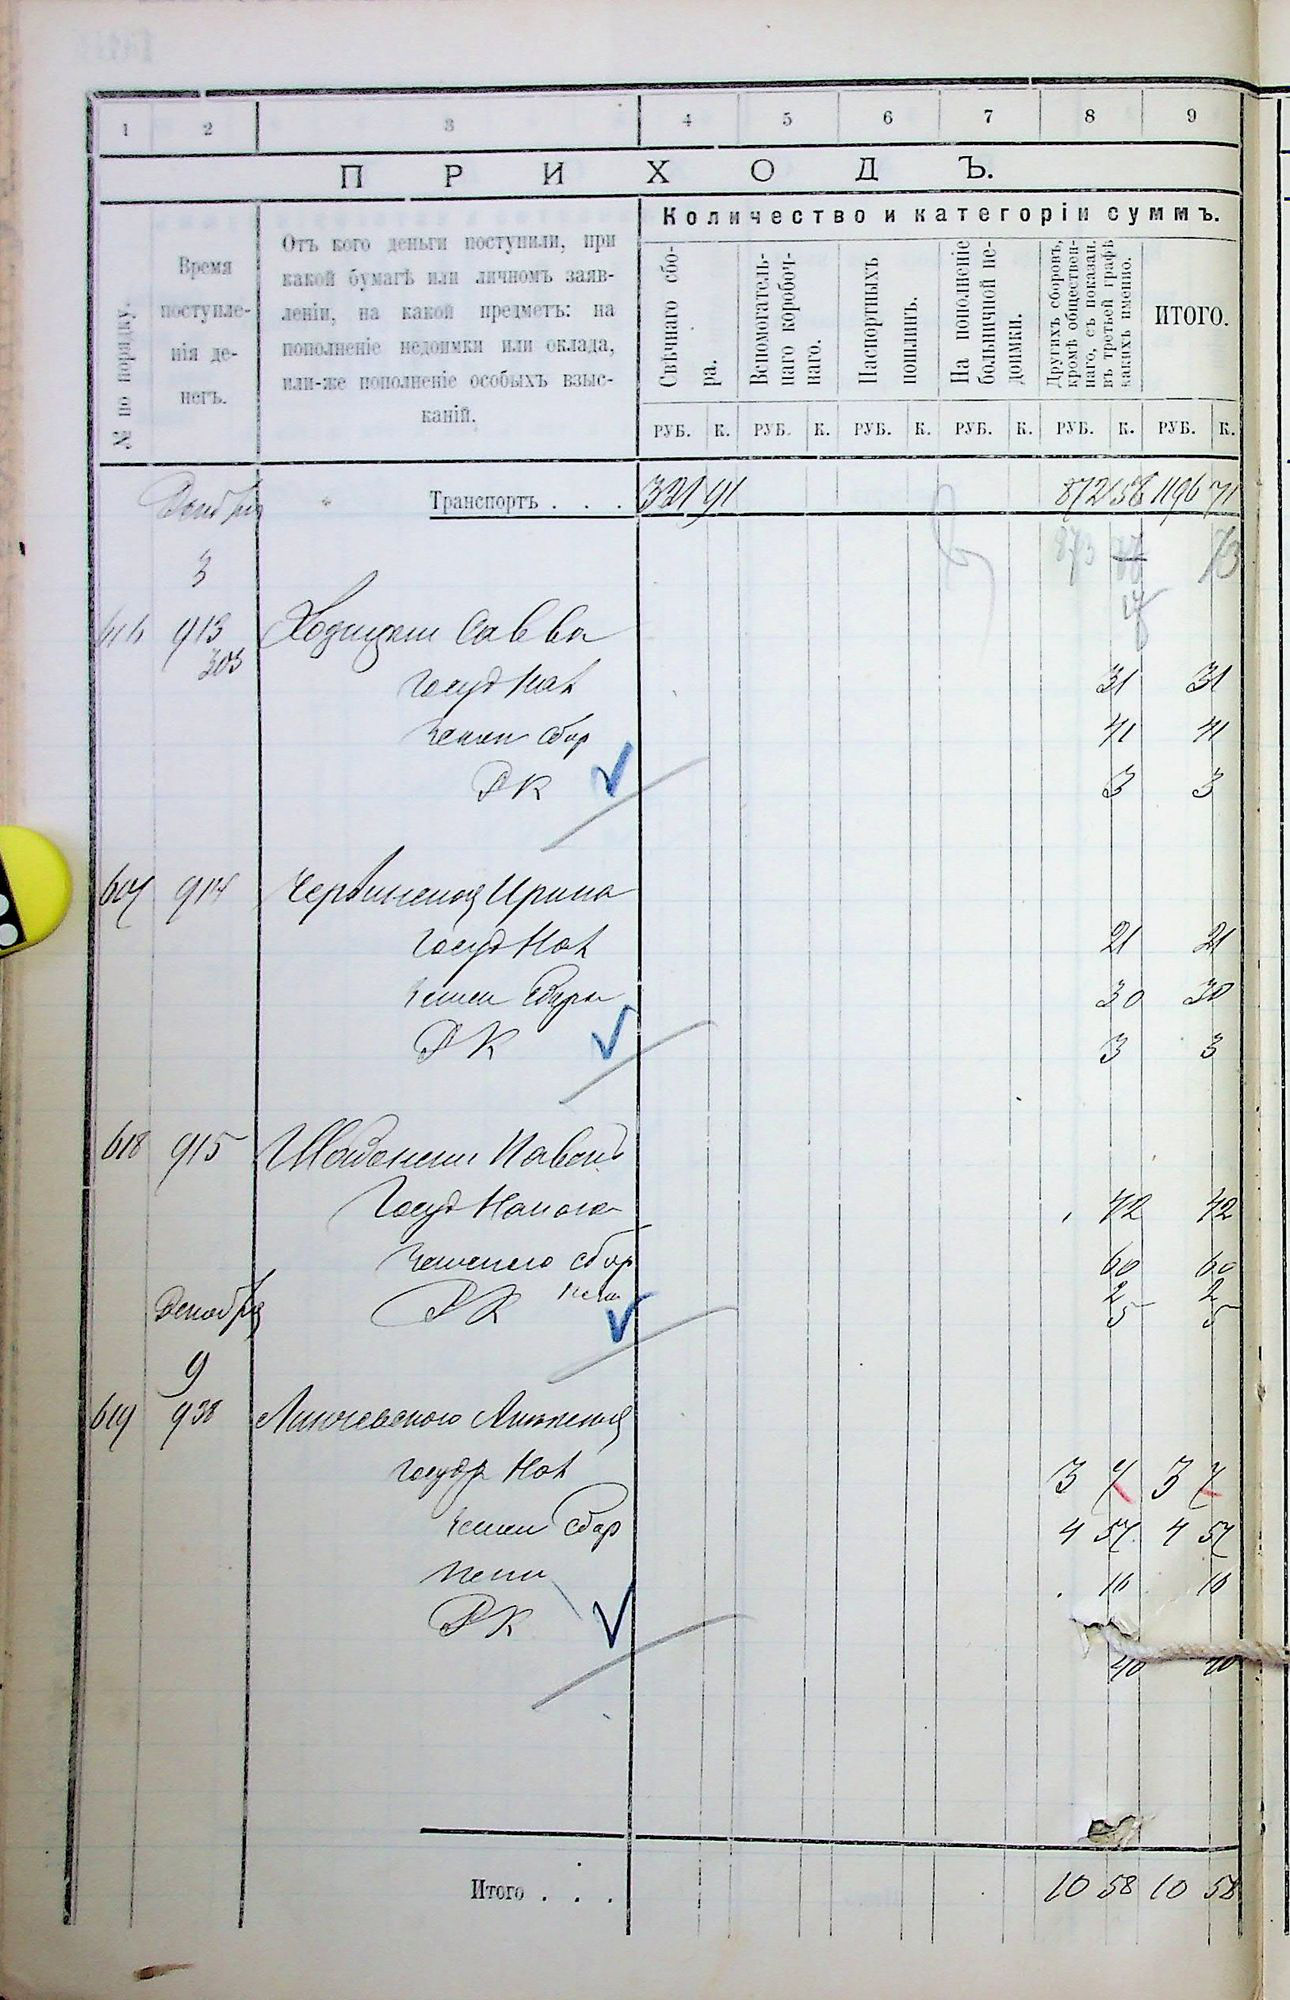 1 2 3 4 5 6 7 8 9
ПРИХОДЪ.
№ по порядку.
Время поступле-
нія де-
негъ.
Отъ кого деньги поступили, при
какой бумагѣ или личномъ заяв-
леніи, на какой предметъ: на
пополненіе недоимки или оклада,
или-же пополненіе особыхъ взыс-
каній.
Количество и категоріи суммъ.
Свѣчнаго сбо-
ра.
Вспомогатель-
наго коробоч-
наго.
Паспортныхъ
пошлинъ.
На пополненіе
больничной не-
доимки.
Другихъ сборовъ,
кромѣ обществен-
наго, съ показан.
въ третьей графѣ
какихъ именно.
ИТОГО.
РУБ. К. РУБ. К. РУБ. К. РУБ. К. РУБ. К. РУБ. К.
Транспортъ . . . 331 91 872 58 1196 71
3
913 Савва
303
Госуд Нал 31 31
Земск сбор 41 41
Р К 3 3
914 Ирина
Госуд Нал 21 21
Земск Сбора 30 30
Р К 3 3
618 915
Госуд Налога 42 42
Земского сбор 60 60
Пени 2 2
Декабря Р К 5 5
9
619 938
Госудр Нал 3 7 3 7
Земск Сбор 4 57 4 57
Пени 16 16
Р К
40 40
Итого . . . 10 58 10 58